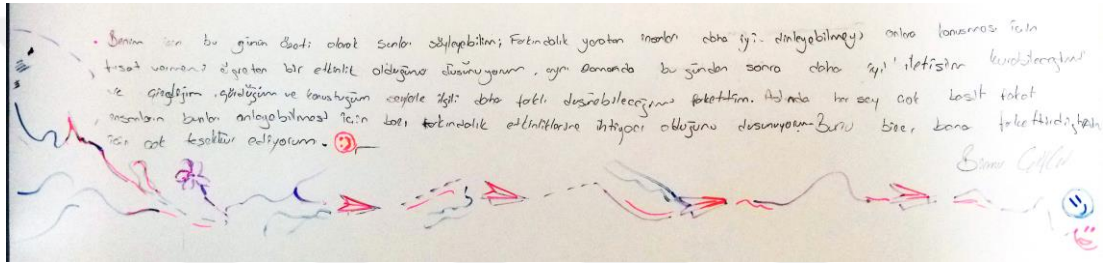 Benim için bu günün özeti olarak şunları söyleyebilirim; Farkındalık yaratan insanları daha iyi dinleyebilmeyi onlara konuşması için
fırsat vermeni öğreten bir etkinlik olduğunu düşünüyorum, aynı zamanda bu günden sonra daha iyi iletişim kurabileceğimi
ve çizdiğim, gördüğüm ve konuştuğum şeylerle ilgili daha farklı düşünebileceğimi farkettim. Aslında her şey çok basit fakat
insanların bunları anlayabilmesi için bazı farkındalık etkinliklerine ihtiyacı olduğunu düşünüyorum. Bunu bize, bana farkettirdiğiniz
için çok teşekkür ediyorum.